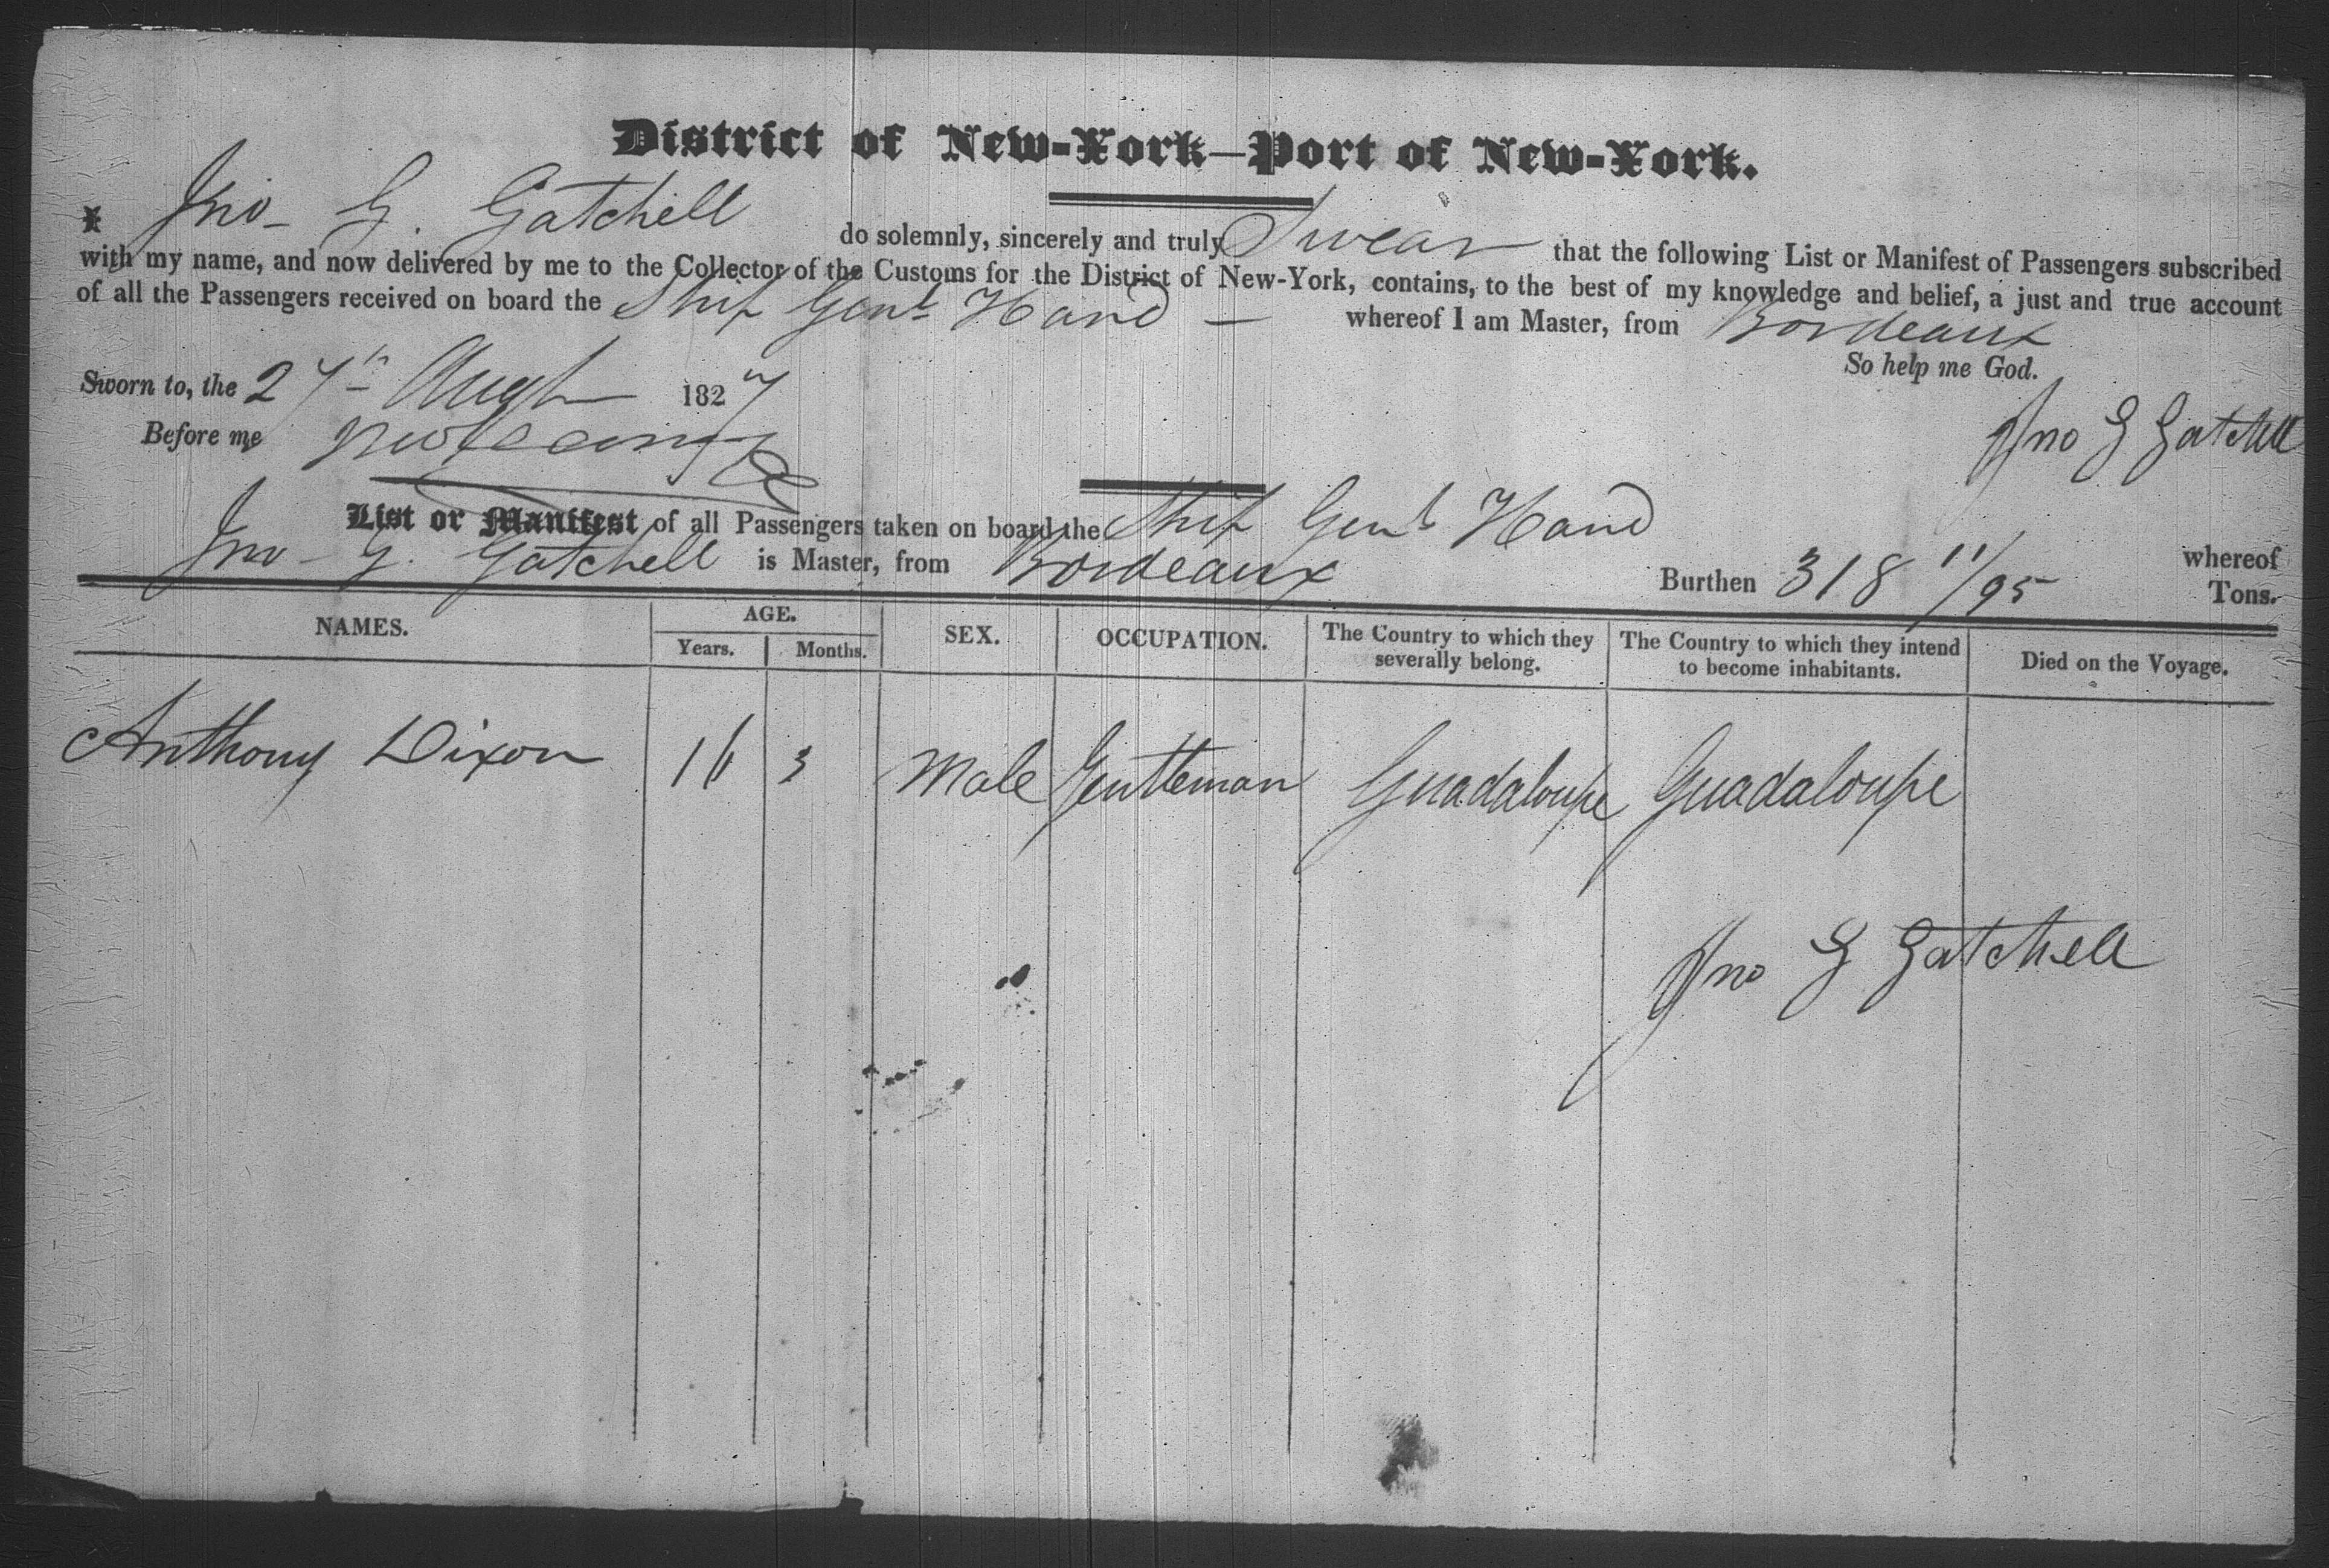 District of New-York—Port of New-York.
I Jno- G. Gatchell do solemnly, sincerely and truly Swear that the following List or Manifest of Passengers subscribed
with my name, and now delivered by me to the Collector of the Customs for the District of New-York, contains, to the best of my knowledge and belief, a just and true account
of all the Passengers received on board the Ship Genl. Hand — whereof I am Master, from Bordeaux
So help me God.
Sworn to, the 27th Augt 1827
Jno G Gatchell
Before me
List or Manifest of all Passengers taken on board the Ship Genl Hand whereof
Jno- G. Gatchell is Master, from Bordeaux Burthen 318 11/95 Tons.
NAMES. AGE. SEX. OCCUPATION. The Country to which they severally belong. The Country to which they intend to become inhabitants. Died on the Voyage.
Years. Months.
Anthony Dixon 16 3 Male Gentleman Guadaloupe Guadaloupe
Jno G Gatchell